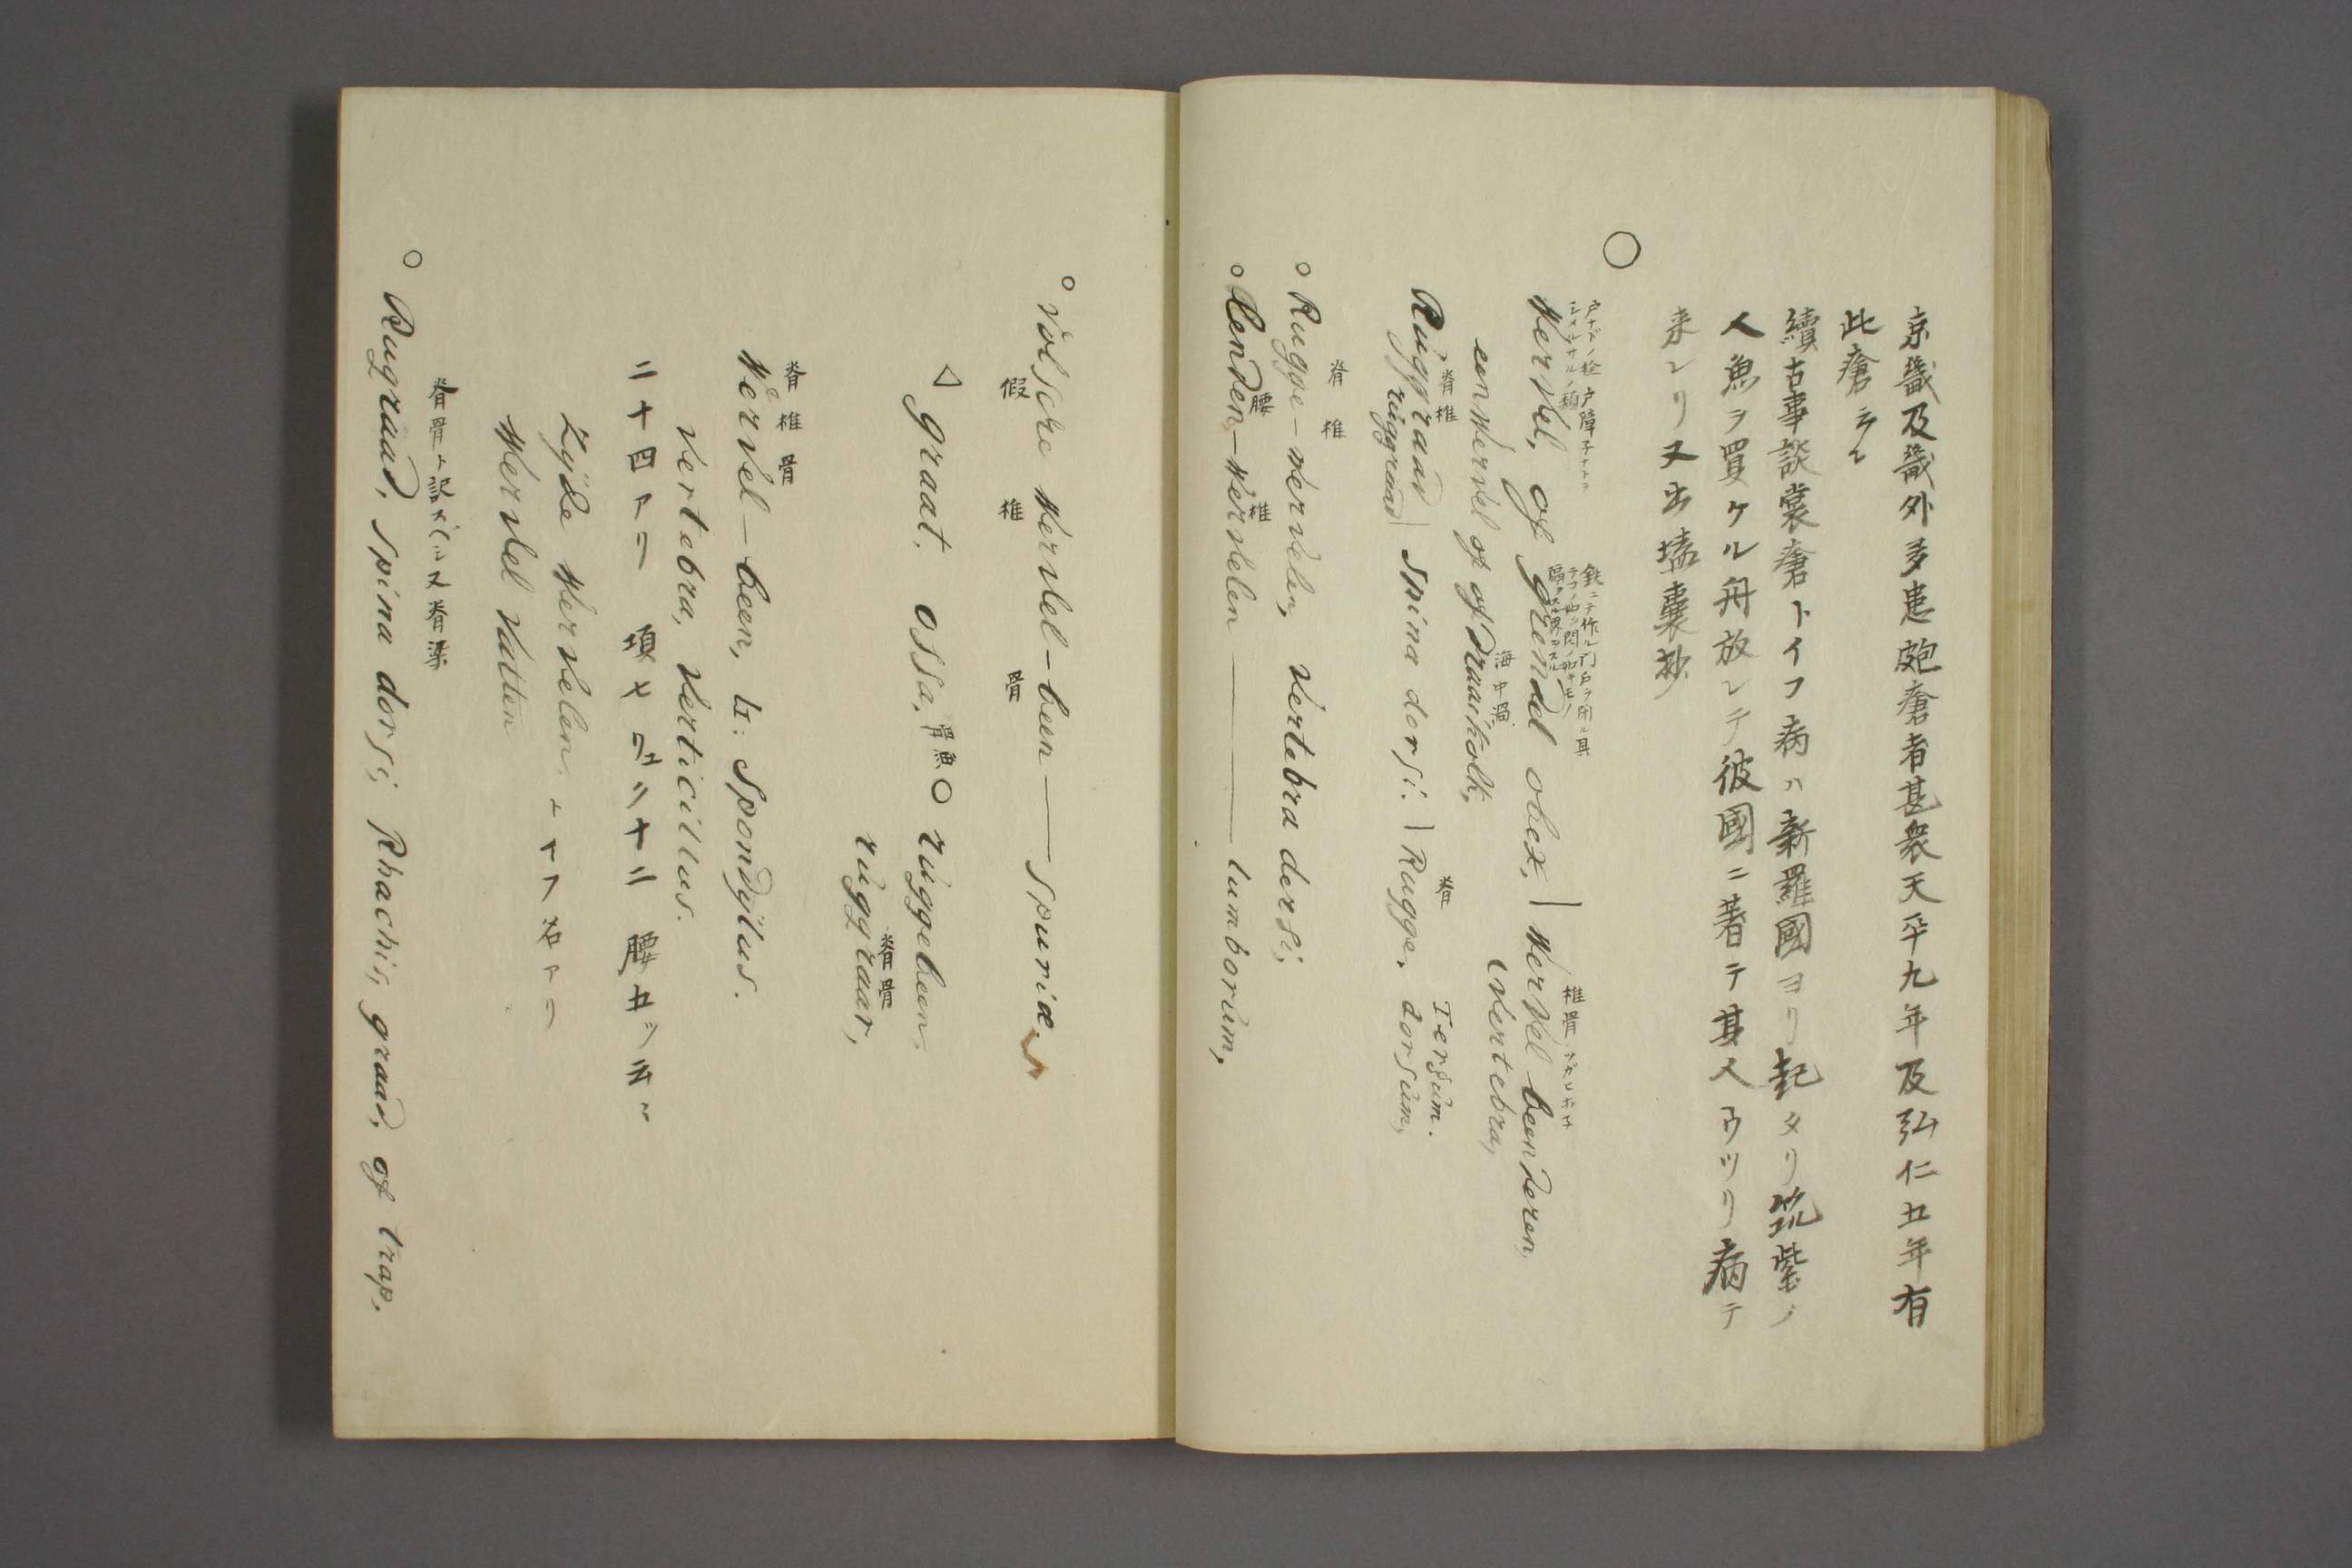 京畿及畿外多患皰瘡者甚衆天平九年及弘仁五年有
此瘡云々
續古事談裳瘡トイフ病ハ新羅國ヨリ起タリ筑紫ノ
人魚ヲ買ケル舟放レテ彼國ニ著テ其人ウツリ病テ
来レリ又出壒嚢抄
○
戸ナドノ栓 戸障子ナトヲ
鉄ニテ作ル門戸ヲ閉ル具
Wervel, of grendel obex, | Wervel beenderen,
椎骨
(vertebra,
een Wervel of of Draaikolk,
海中渦
脊椎
Ruggraad | Spina dorsi. | Rugge. dorsum,
ruggraad
脊
Tergum.
脊椎
○ Rugge-wervelen, vertebra dorsi,
腰 椎
○ Lenden-Wervelen —— lumborum,
○ Valsche Wervel-been —— spuriæ.
假 椎 骨
△ graat. ossa. 骨魚 ○ ruggebeen.
脊骨
ruggraar,
脊椎骨
Wervel-been, L: Spondylus.
vertebra, verticillus.
二十四アリ 項七 十二 腰五ツ云々
Zyde Wervelen, トイフ名アリ
Wervel Vatten
脊骨ト訳スベシ又脊梁
○ Rugraad, spina dorsi, Rhachis, graad, of trap.